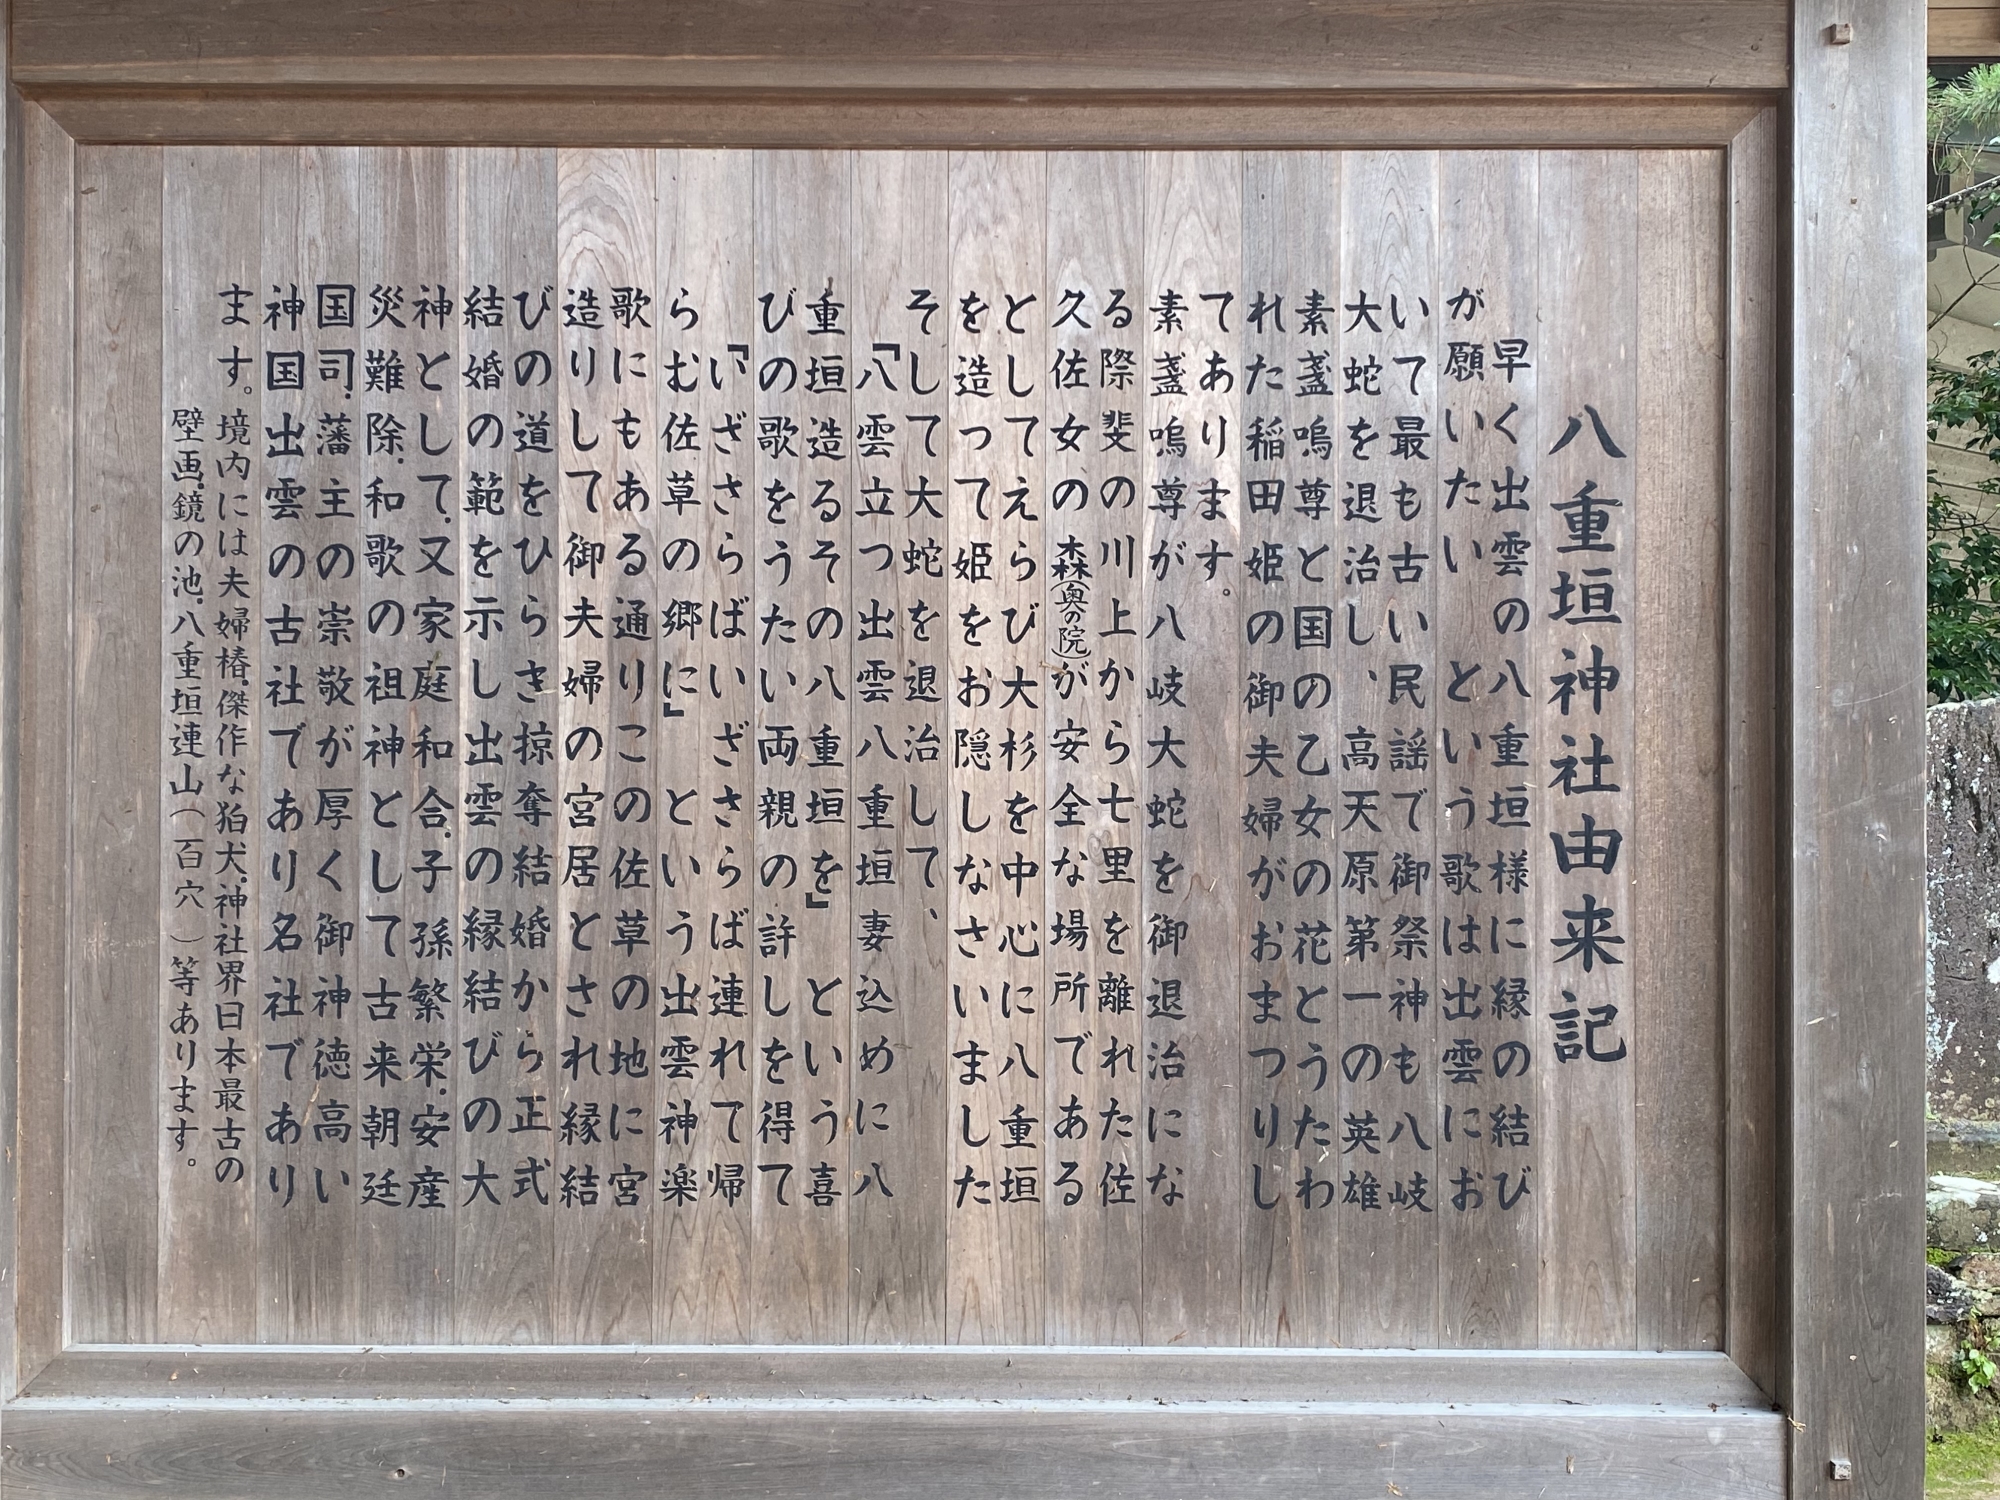 八重垣神社由来記
早く出雲の八重垣様に縁の結び
が願いたい　という歌は出雲にお
いて最も古い民謡で御祭神も八岐
大蛇を退治し、高天原第一の英雄
素盞嗚尊と国の乙女の花とうたわ
れた稲田姫の御夫婦がおまつりし
てあります。
素盞嗚尊が八岐大蛇を御退治にな
る際斐の川上から七里を離れた佐
久佐女の森(奥の院)が安全な場所である
としてえらび大杉を中心に八重垣
を造って姫をお隠しなさいました
そして大蛇を退治して、
「八雲立つ出雲八重垣妻込めに八
重垣造るその八重垣を」という喜
びの歌をうたい両親の許しを得て
「いざさらばいざさらば連れて帰
らむ佐草の郷に」という出雲神楽
歌にもある通りこの佐草の地に宮
造りして御夫婦の宮居とされ縁結
びの道をひらき掠奪結婚から正式
結婚の範を示し出雲の縁結びの大
神として、又家庭和合、子孫繁栄、安産
災難除、和歌の祖神として古来朝廷
国司、藩主の崇敬が厚く御神徳高い
神国出雲の古社であり名社であり
ます。境内には夫婦椿、傑作な狛犬、神社界日本最古の
壁画、鏡の池、八重垣連山（百穴）等あります。